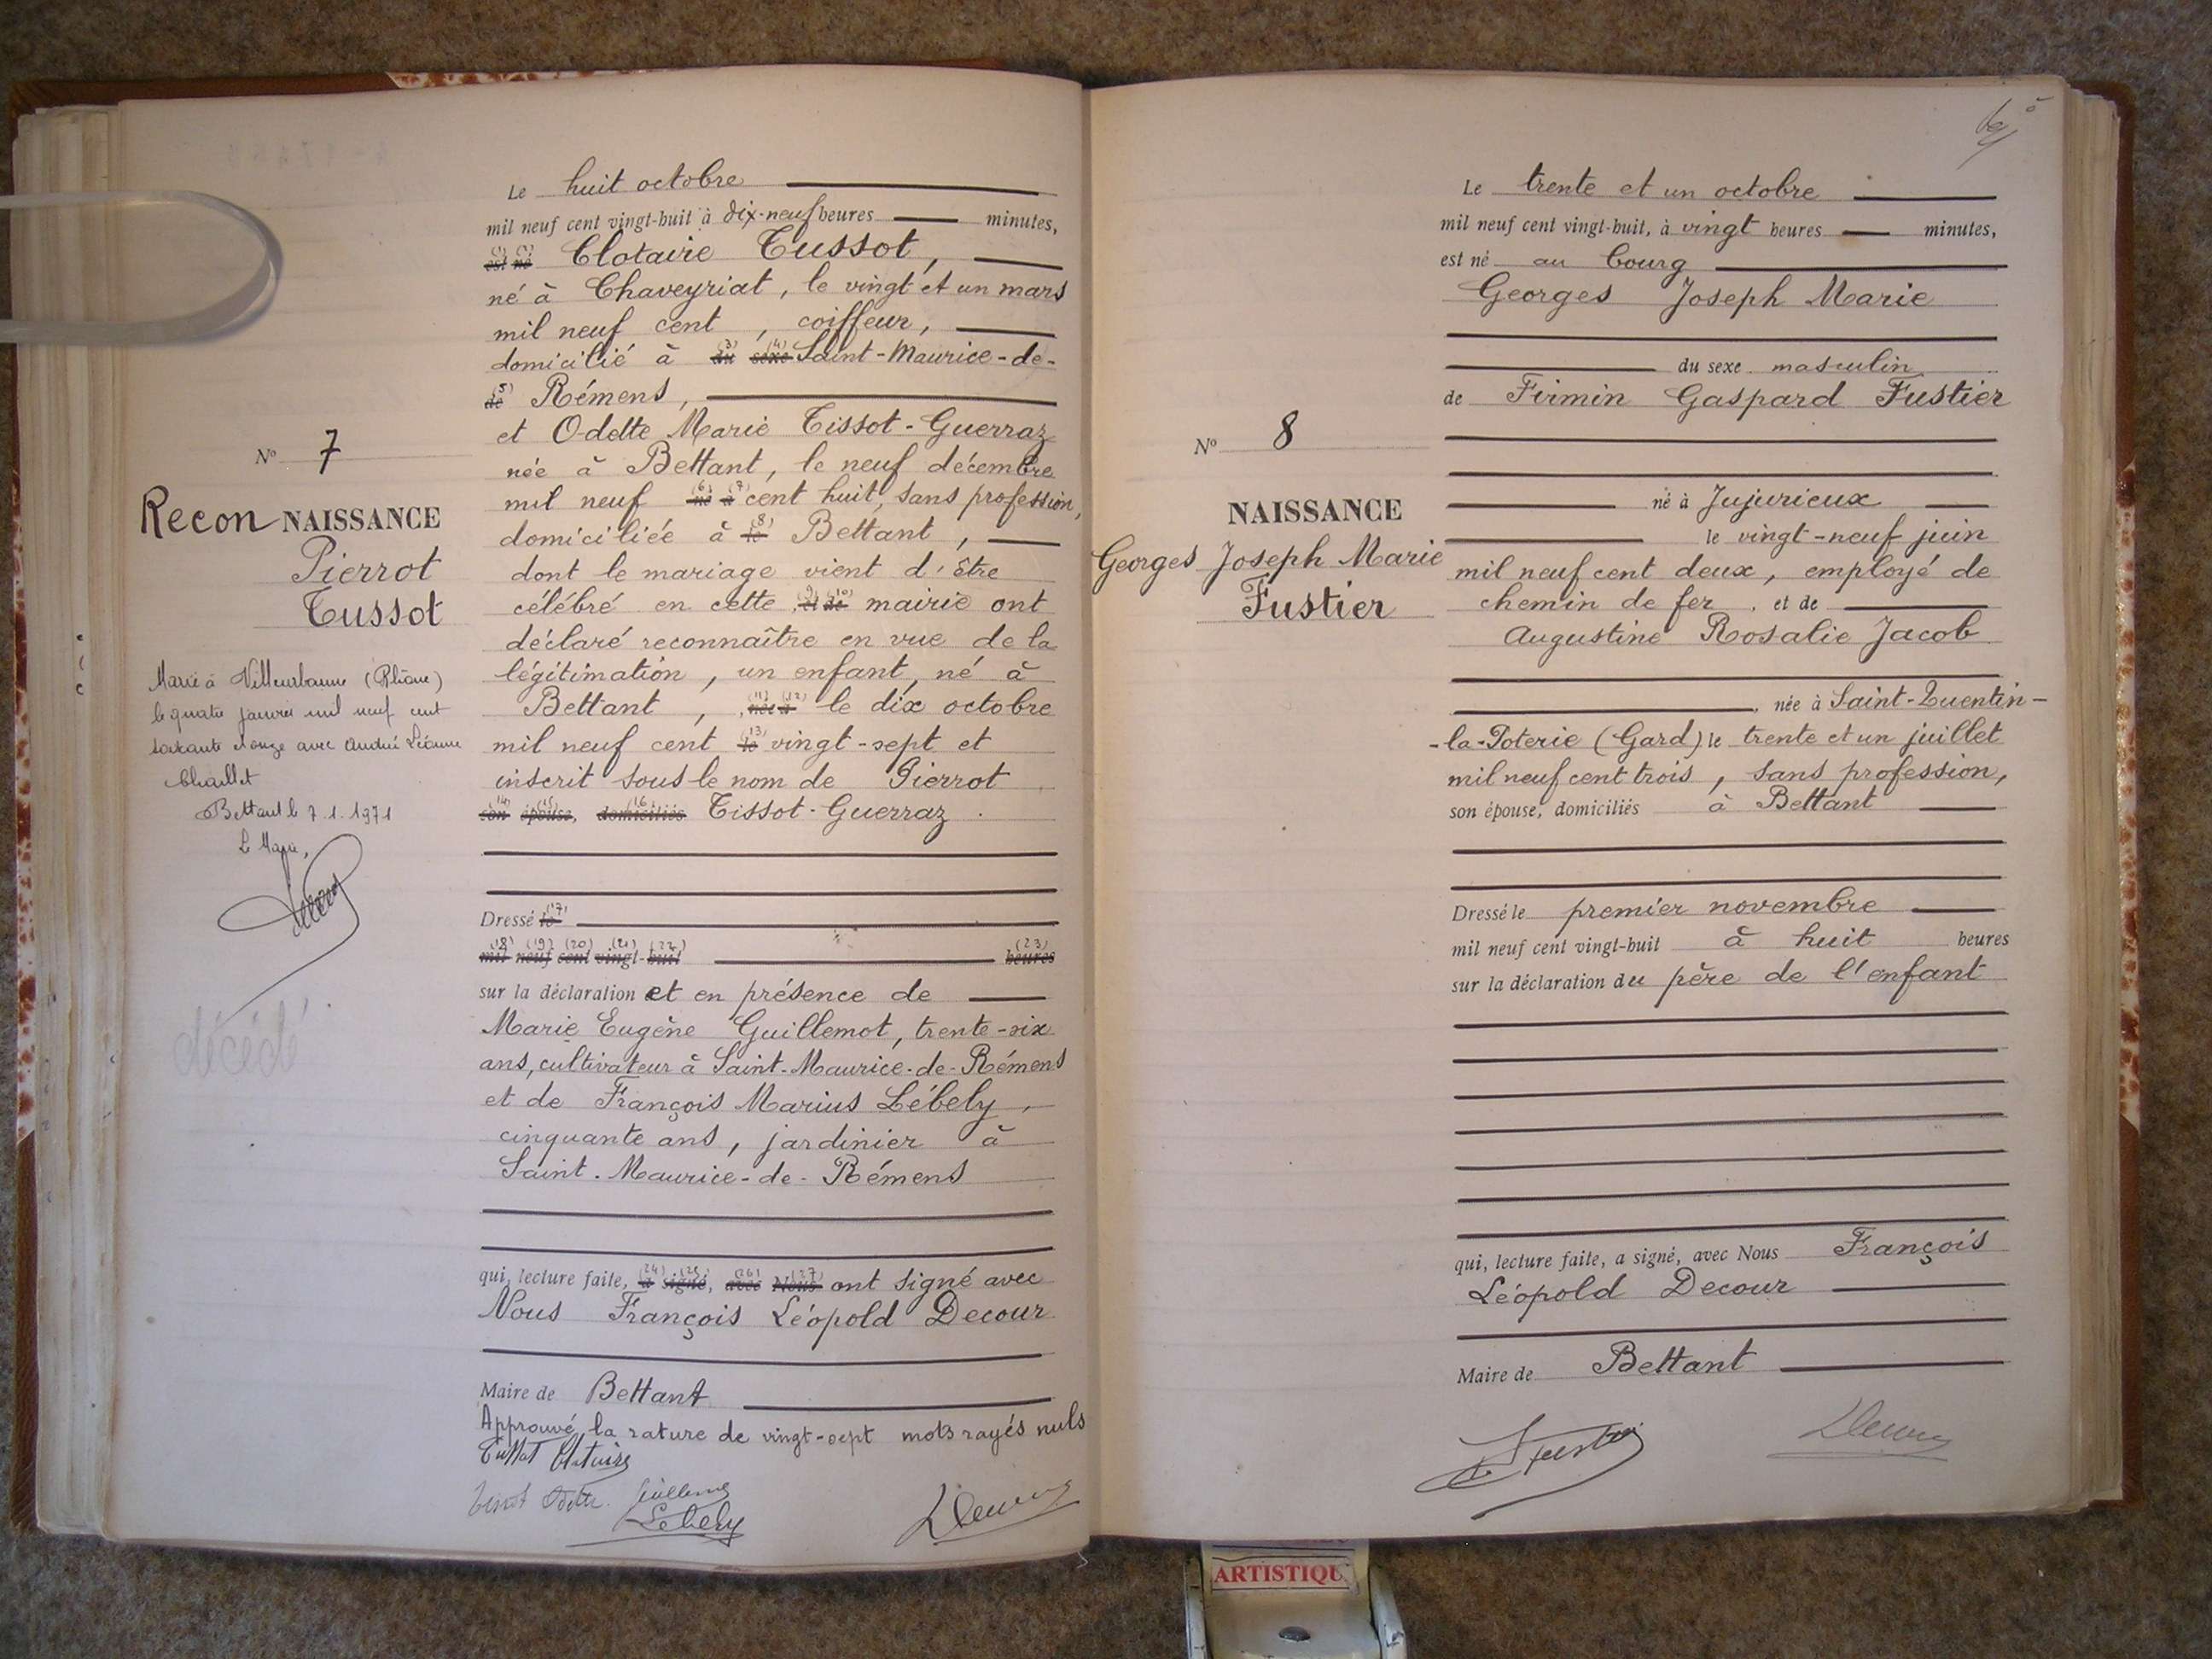 Le huit octobre
mil neuf cent vingt-huit à dix-neuf heures minutes,
(1) (2)
est né Clotaire Tussot,
né à Chaveyriat, le vingt et un mars
mil neuf cent, coiffeur,
domicilié à (3) du (4) sexe Saint-Maurice-de-
(5) de Rémens,
et Odette Marie Tissot-Guerraz
née à Bettant, le neuf décembre
mil neuf (6) né (7) à cent huit, sans profession,
domiciliée à (8) le Bettant,
dont le mariage vient d'être
célébré en cette (9) et (10) de mairie ont
déclaré reconnaître en vue de la
légitimation, un enfant, né à
Bettant, (11) née (12) à le dix octobre
mil neuf cent (13) le vingt-sept et
inscrit sous le nom de Pierrot
(14) (15) (16)
son épouse, domiciliés Tissot-Guerraz.
Dressé le (17)
(18) (19) (20) (21) (22) (23)
mil neuf cent vingt-huit heures
sur la déclaration et en présence de
Marie Eugène Guillemot, trente-six
ans, cultivateur à Saint-Maurice-de-Rémens
et de François Marius Lébely,
cinquante ans, jardinier à
Saint-Maurice-de-Rémens
(24) (25) (26) (27)
qui, lecture faite, a signé, avec Nous ont signé avec
Nous François Léopold Decour
Maire de Bettant
Approuvé la rature de vingt-sept mots rayés nuls
Tussot Clotaire
Tissot Odette. Guillemot
Lebely
Decour
No 7
Recon NAISSANCE
Pierrot
Tussot
Marié à Villeurbanne (Rhône)
le quatre janvier mil neuf cent
soixante et onze avec Andrée Léonne
Chaillet
Bettant le 7.1.1971
Le Maire,
décédé
Le trente et un octobre
mil neuf cent vingt-huit, à vingt heures minutes,
est né au bourg
Georges Joseph Marie
du sexe masculin
de Firmin Gaspard Fustier
né à Jujurieux
le vingt-neuf juin
mil neuf cent deux, employé de
chemin de fer, et de
Augustine Rosalie Jacob
née à Saint-Quentin-
-la-Poterie (Gard) le trente et un juillet
mil neuf cent trois, sans profession,
son épouse, domiciliés à Bettant
Dressé le premier novembre
mil neuf cent vingt-huit à huit heures
sur la déclaration du père de l'enfant
qui, lecture faite, a signé, avec Nous François
Léopold Decour
Maire de Bettant
Fustier
Decour
No 8
NAISSANCE
Georges Joseph Marie
Fustier
ARTISTIQU